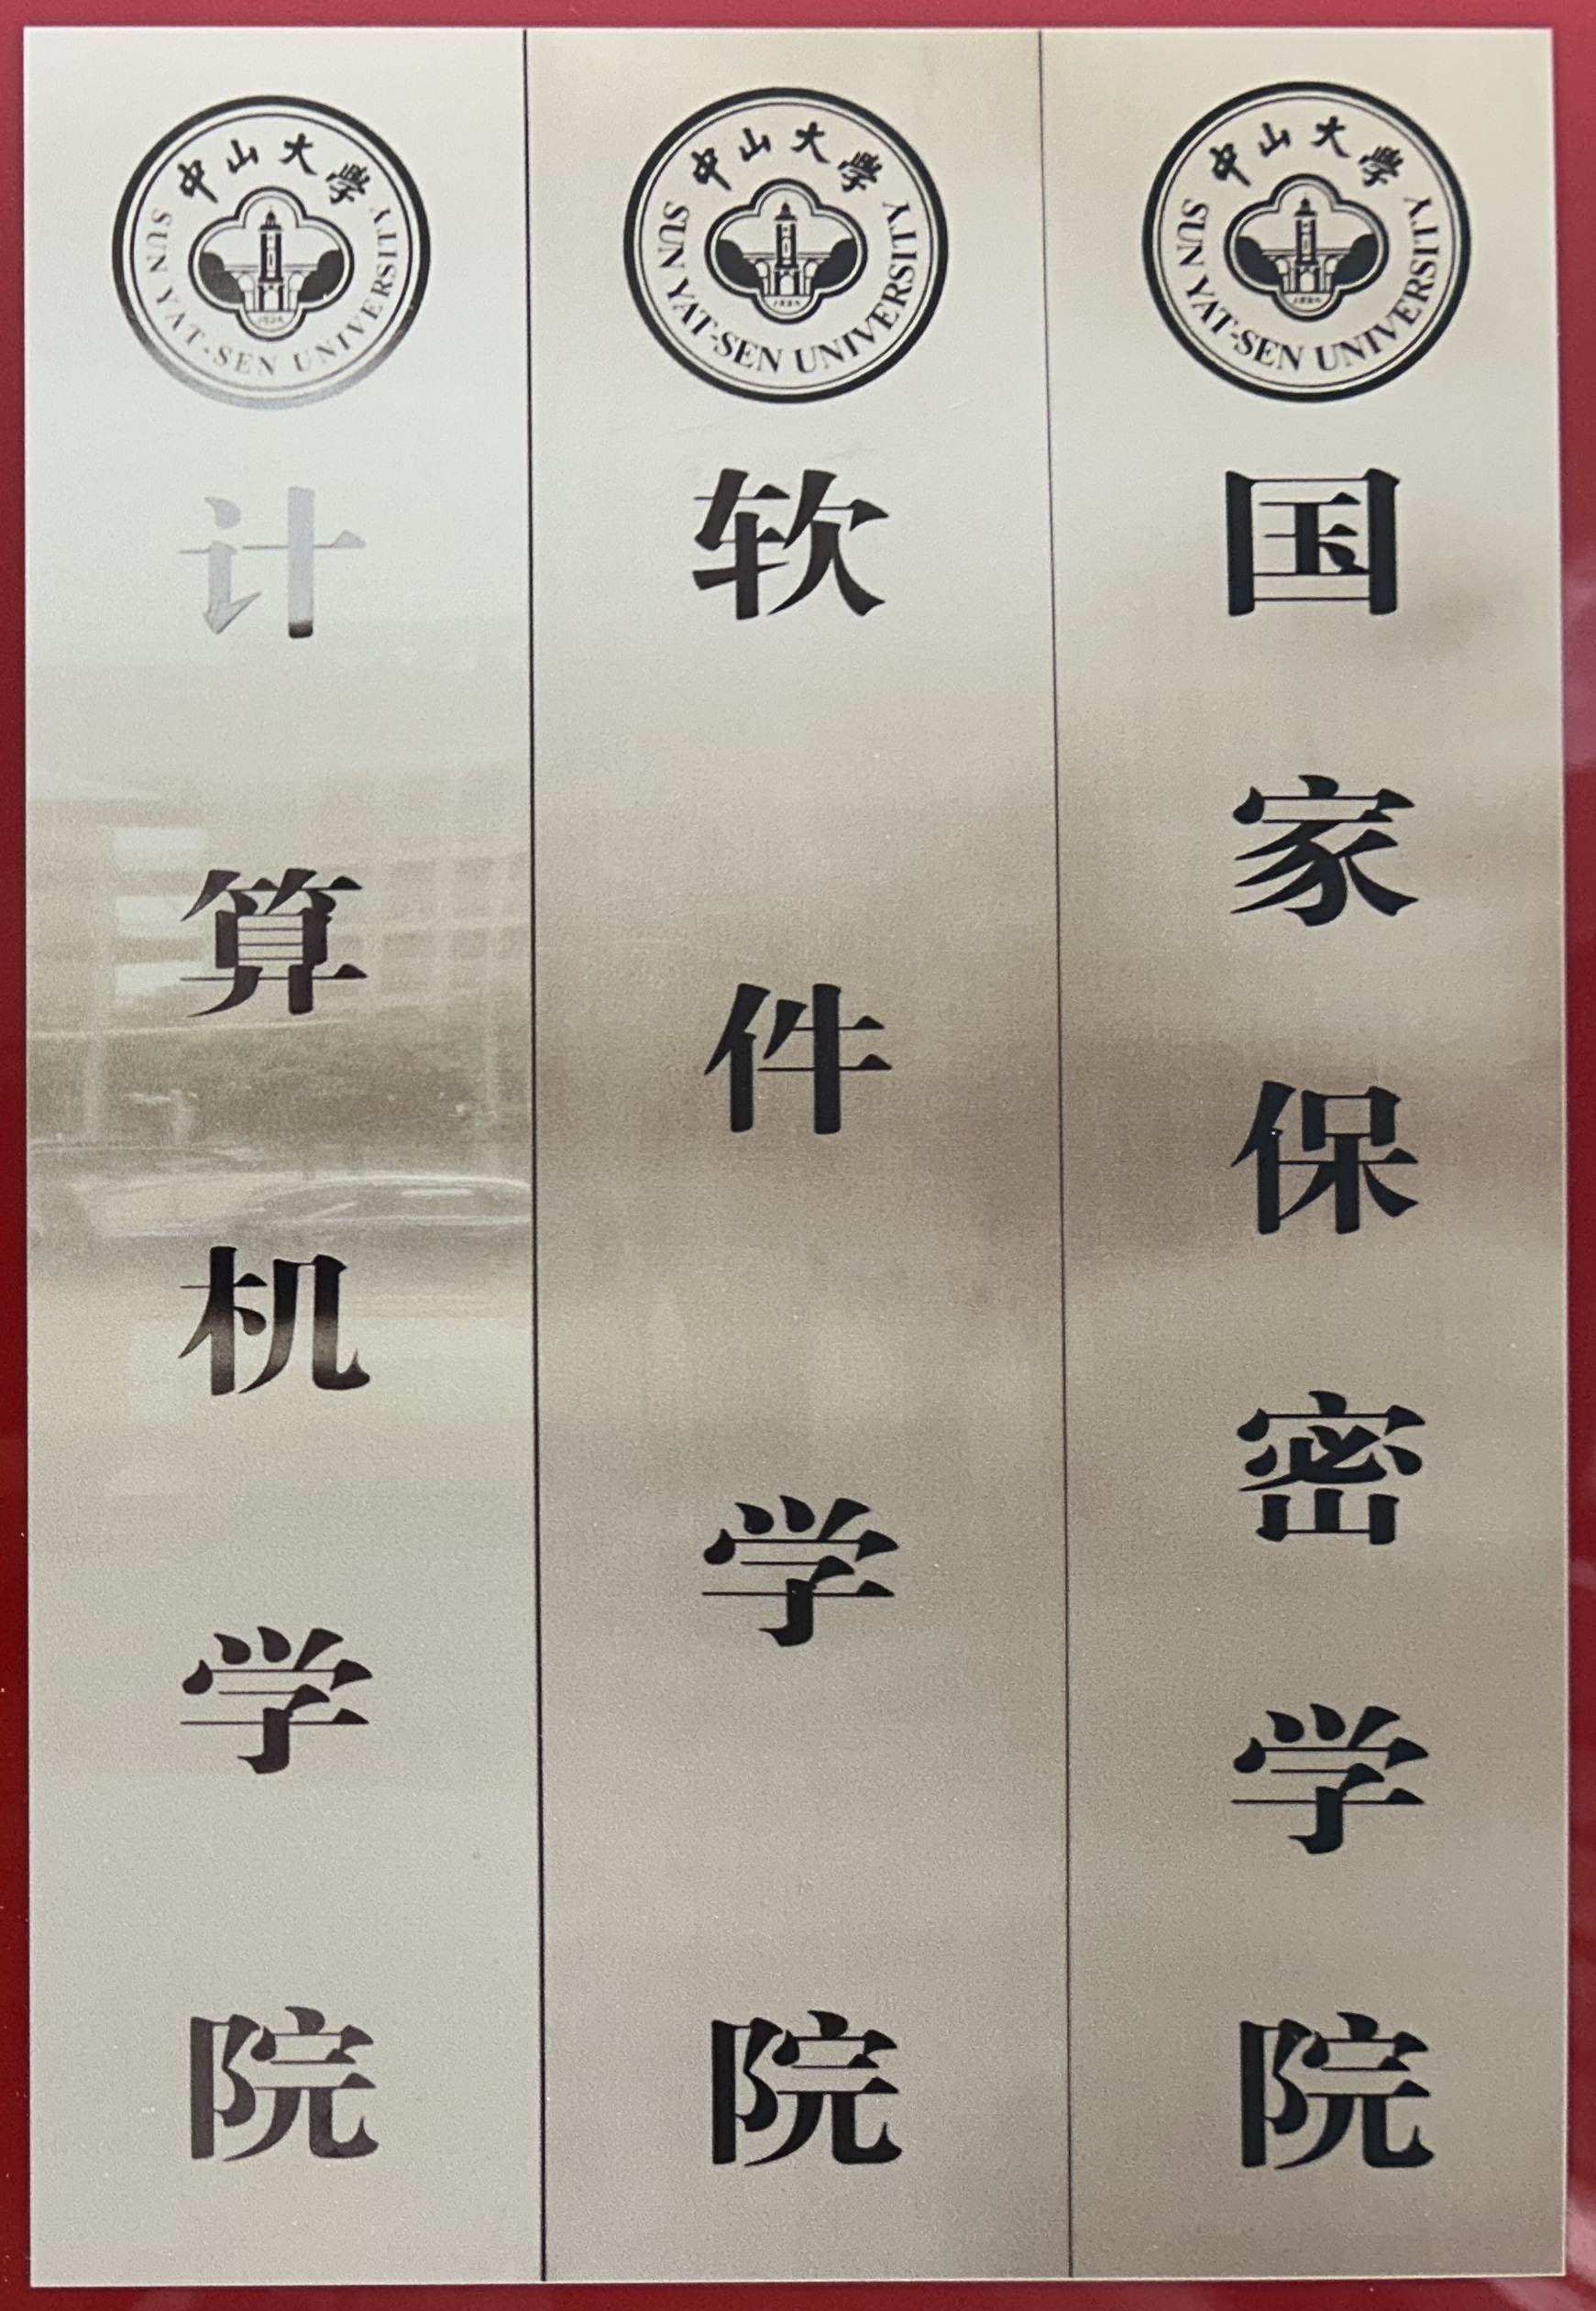 中山大學
SUN YAT-SEN UNIVERSITY
1924
计算机学院
中山大學
SUN YAT-SEN UNIVERSITY
1924
软件学院
中山大學
SUN YAT-SEN UNIVERSITY
1924
国家保密学院